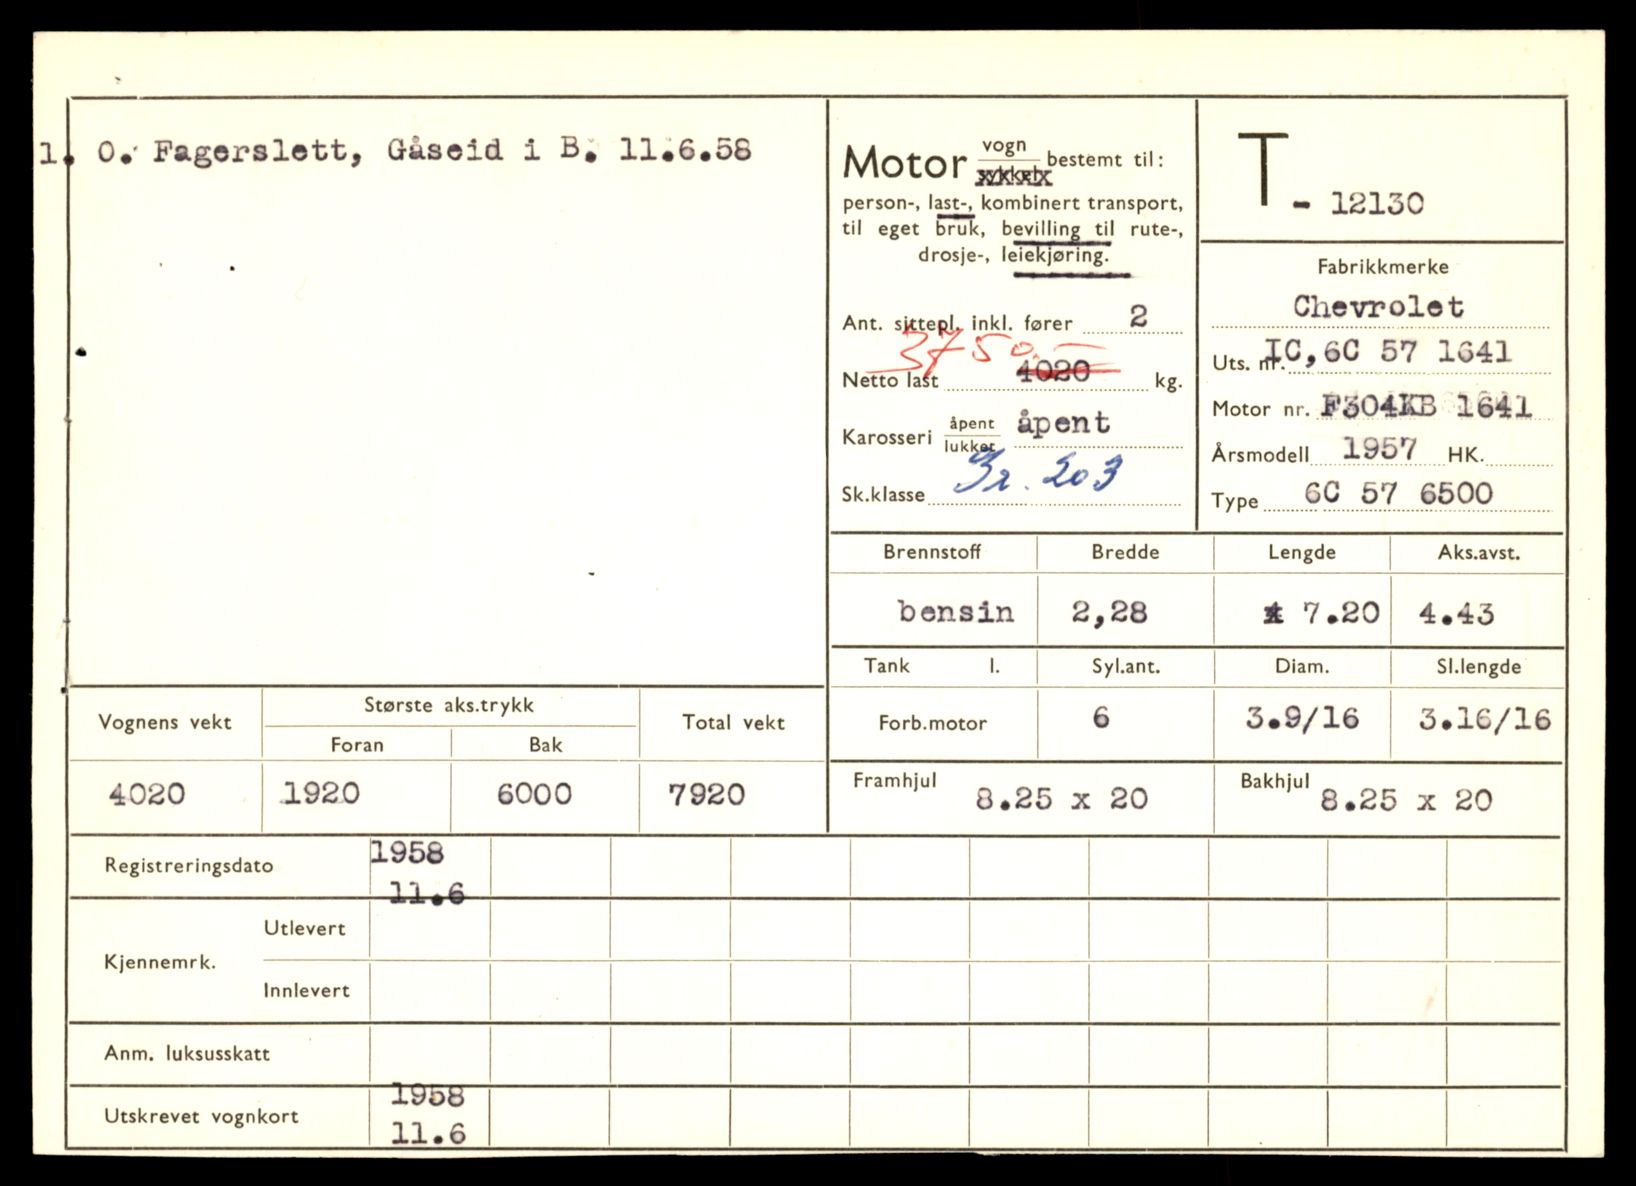 1. O. Fagerslett, Gåseid i B. 11.6.58
Motor vogn bestemt til:
sykkel
person-, last-, kombinert transport,
til eget bruk, bevilling til rute-,
drosje-, leiekjøring.
Ant. sittepl. inkl. fører 2
3750.-
Netto last 4020 kg.
Karosseri åpent lukket åpent
Sk.klasse Gr. 203
T - 12130
Fabrikkmerke
Chevrolet
Uts. nr. IC,6C 57 1641
Motor nr. F304KB 1641
Årsmodell 1957 HK.
Type 6C 57 6500
Brennstoff Bredde Lengde Aks.avst.
bensin 2,28 7.20 4.43
Tank l. Syl.ant. Diam. Sl.lengde
Forb.motor 6 3.9/16 3.16/16
Framhjul 8.25 x 20 Bakhjul 8.25 x 20
Vognens vekt Største aks.trykk Total vekt
Foran Bak
4020 1920 6000 7920
Registreringsdato 1958
11.6
Utlevert
Kjennemrk.
Innlevert
Anm. luksusskatt
Utskrevet vognkort 1958
11.6